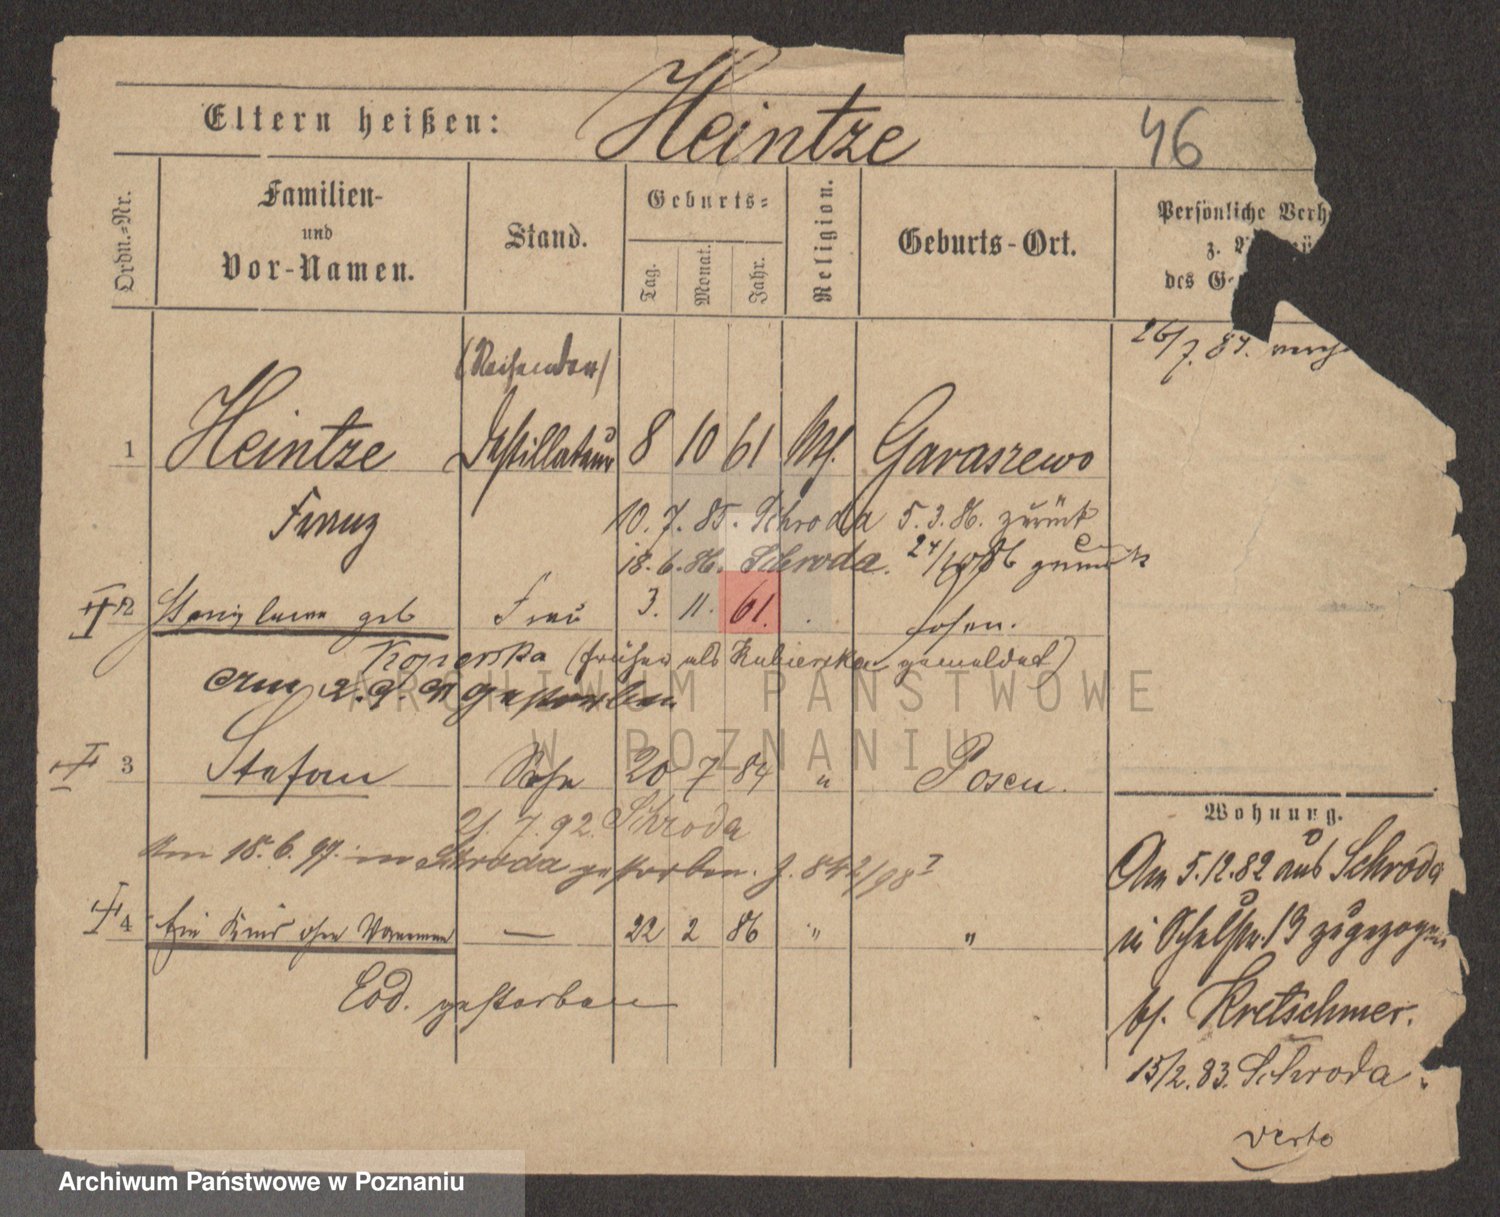 Eltern heißen: Heintze 46
Ordn.-Nr.
Familien-
und
Vor-Namen.
Stand.
Geburts-
Tag. Monat. Jahr.
Religion.
Geburts-Ort.
Persönliche Verh
z.
des G
26/7. 87.
(Reisender)
1 Heintze Destillateur 8 10 61 Garaszewo
Franz
10. 7. 85. Schroda 5. 3. 86. zurück
18. 6. 86. Schroda. 24/10 86 zurück
2 Stanislawa geb Frau 3. 11. 61. Posen.
Koperska (früher als Kubierska gemeldet)
Am 2. 9. gestorben
3 Stefan Sohn 20 7 84 " Posen.
7. 92. Schroda
Am 18. 6. 97. in Schroda gestorben. J. 842/98 I
4 Ein Kind ohne Vornamen — 22 2 86 " "
Eod. gestorben
Wohnung.
Am 5.12.82 aus Schroda
in Schulstr. 13 zugezogen
bf. Kretschmer.
15/2. 83. Schroda.
verte
ARCHIWUM PAŃSTWOWE
W POZNANIU
Archiwum Państwowe w Poznaniu